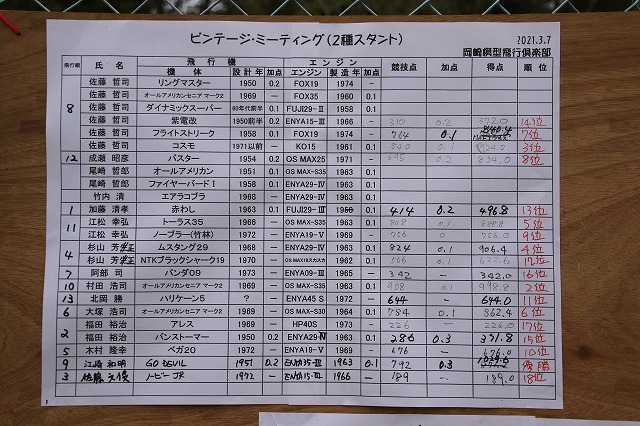 ビンテージ・ミーティング(2種スタント)
2021.3.7
岡崎模型飛行倶楽部
飛行順 氏名 飛行機 エンジン 競技点 加点 得点 順位
機体 設計年 加点 エンジン 製造年 加点
8 佐藤 哲司 リングマスター 1950 0.2 FOX19 1974 −
佐藤 哲司 オールアメリカンセニア マーク2 1969 − FOX35 1960 0.1
佐藤 哲司 ダイナミックスーパー 60年代前半 0.1 FUJI29−Ⅱ 1958 0.1
佐藤 哲司 紫電改 1950前半 0.2 ENYA15−Ⅲ 1966 − 310 0.2 372.0 14位
佐藤 哲司 フライトストリーク 1958 0.1 FOX19 1974 − 764 0.1 840.4 7位
佐藤 哲司 コスモ 1971以前 − KO15 1961 0.1 840 0.1 924.0 3位
12 成瀬 昭彦 バスター 1954 0.2 OS MAX25 1971 − 695 0.2 834.0 8位
尾崎 哲郎 オールアメリカン 1951 0.1 OS MAX−S35 1963 0.1
尾崎 哲郎 ファイヤーバードⅠ 1958 0.1 ENYA29−Ⅳ 1963 0.1
竹内 清 エアラコブラ 1968 − ENYA29−Ⅳ 1963 0.1
1 加藤 清孝 赤わし 1963 0.1 FUJI29−Ⅲ 0.1 414 0.2 496.8 13位
11 江松 幸弘 トーラス35 1966 − OS MAX−S35 1963 0.1 808 0.1 888.8 5位
江松 幸弘 ノーブラー(竹林) 1972 − ENYA19−Ⅴ 1969 − 766 0 766.0 9位
4 杉山 芳正 ムスタング29 1968 − ENYA29−Ⅳ 1963 0.1 824 0.1 906.4 4位
杉山 芳正 NTKブラックシャーク19 1970 − 1962 0.1 566 0.1 622.6 12位
7 阿部 司 パンダ09 1973 − ENYA09−Ⅲ 1965 − 342 − 342.0 16位
10 村田 浩司 オールアメリカンセニア マーク2 1969 − OS MAX−S35 1963 0.1 908 0.1 998.8 2位
13 北岡 勝 ハリケーン5 ? − ENYA45 S 1972 − 644 − 644.0 11位
6 大塚 浩司 オールアメリカンセニア マーク2 1969 − OS MAX−S30 1964 0.1 784 0.1 862.4 6位
2 福田 裕治 アレス 1969 − HP40S 1973 − 226 − 226.0 17位
福田 裕治 バンストーマー 1950 0.2 ENYA29−Ⅳ 1963 0.1 286 0.3 371.8 15位
5 木村 隆幸 ベガ20 1972 − ENYA19−Ⅴ 1969 − 676 − 676.0 10位
9 江崎 和明 GO DEVIL 1951 0.2 ENYA35−Ⅲ 1963 0.1 792 0.3 1029.6 優勝
3 佐藤 ノービーJR 1972 − ENYA15−Ⅲ 1966 − 189 − 189.0 18位